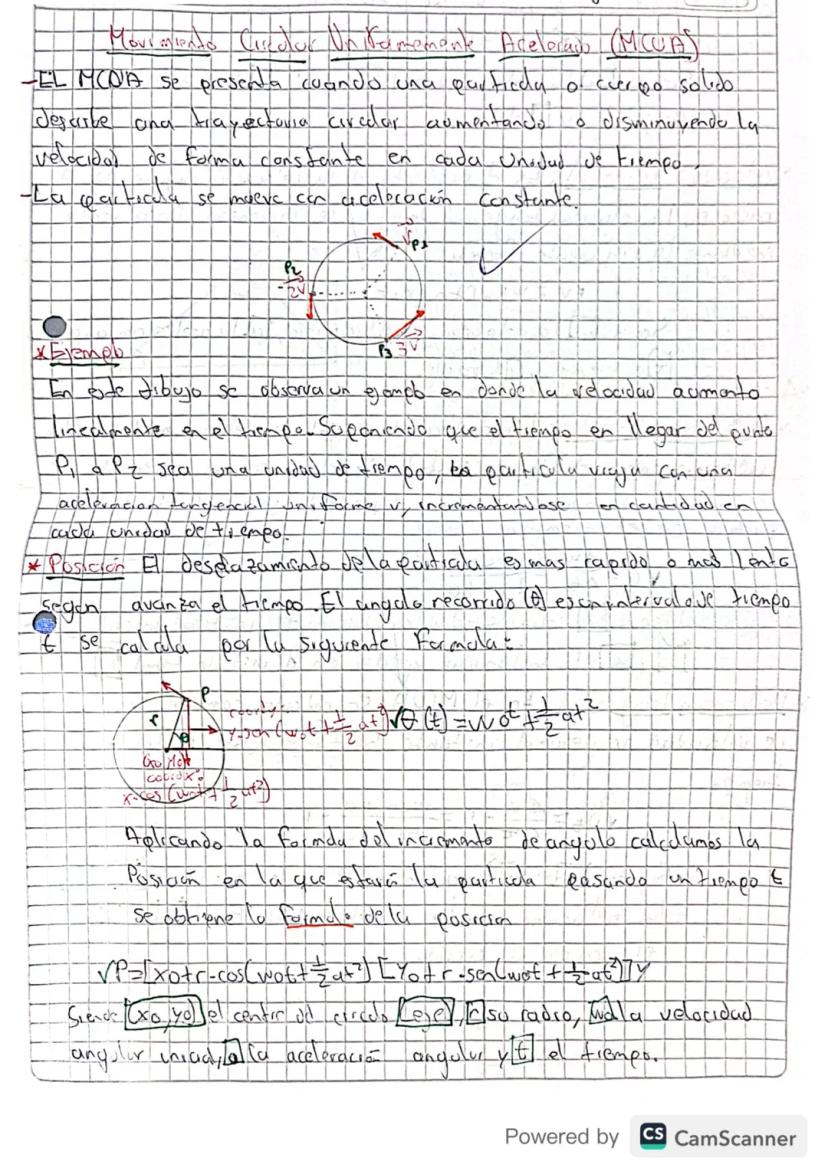 Movimiento Circular Uniformemente Acelerado (MCUA)
-EL MCUA se presenta cuando una particula o cuerpo solido
describe una trayectoria circular aumentando o disminuyendo la
velocidad de forma constante en cada unidad de tiempo.
-La particula se mueve con aceleración constante.
VP1
P2
-2V
P3 3V
*Ejemplo
En este dibujo se observa un ejemplo en donde la velocidad aumenta
linealmente en el tiempo. Suponiendo que el tiempo en llegar del punto
P1 a P2 sea una unidad de tiempo, la particula viaja con una
aceleracion tangencial uniforme v, incrementandose en cantidad en
cada unidad de tiempo.
* Posición El desplazamiento de la particula es mas rapido o mas lento
según avanza el tiempo. El angulo recorrido (θ) es un intervalo de tiempo
t se calcula por la siguiente formula:
P
r
θ
y-sen (wot + 1/2 at²) √θ (t) = wot + 1/2 at²
x-cos (wot + 1/2 at²)
Aplicando la formula del incremento de angulo calculamos la
Posición en la que estará la particula pasando un tiempo t
se obtiene la formula de la posicion
√P=[xo+r-cos(wot+1/2at²)] [Yo+r-sen(wot+1/2at²)]y
Siendo (xo,yo) el centro del circulo (eje), r su radio, wo la velocidad
angular inicial, a la aceleración angular y t el tiempo.
Powered by CS CamScanner